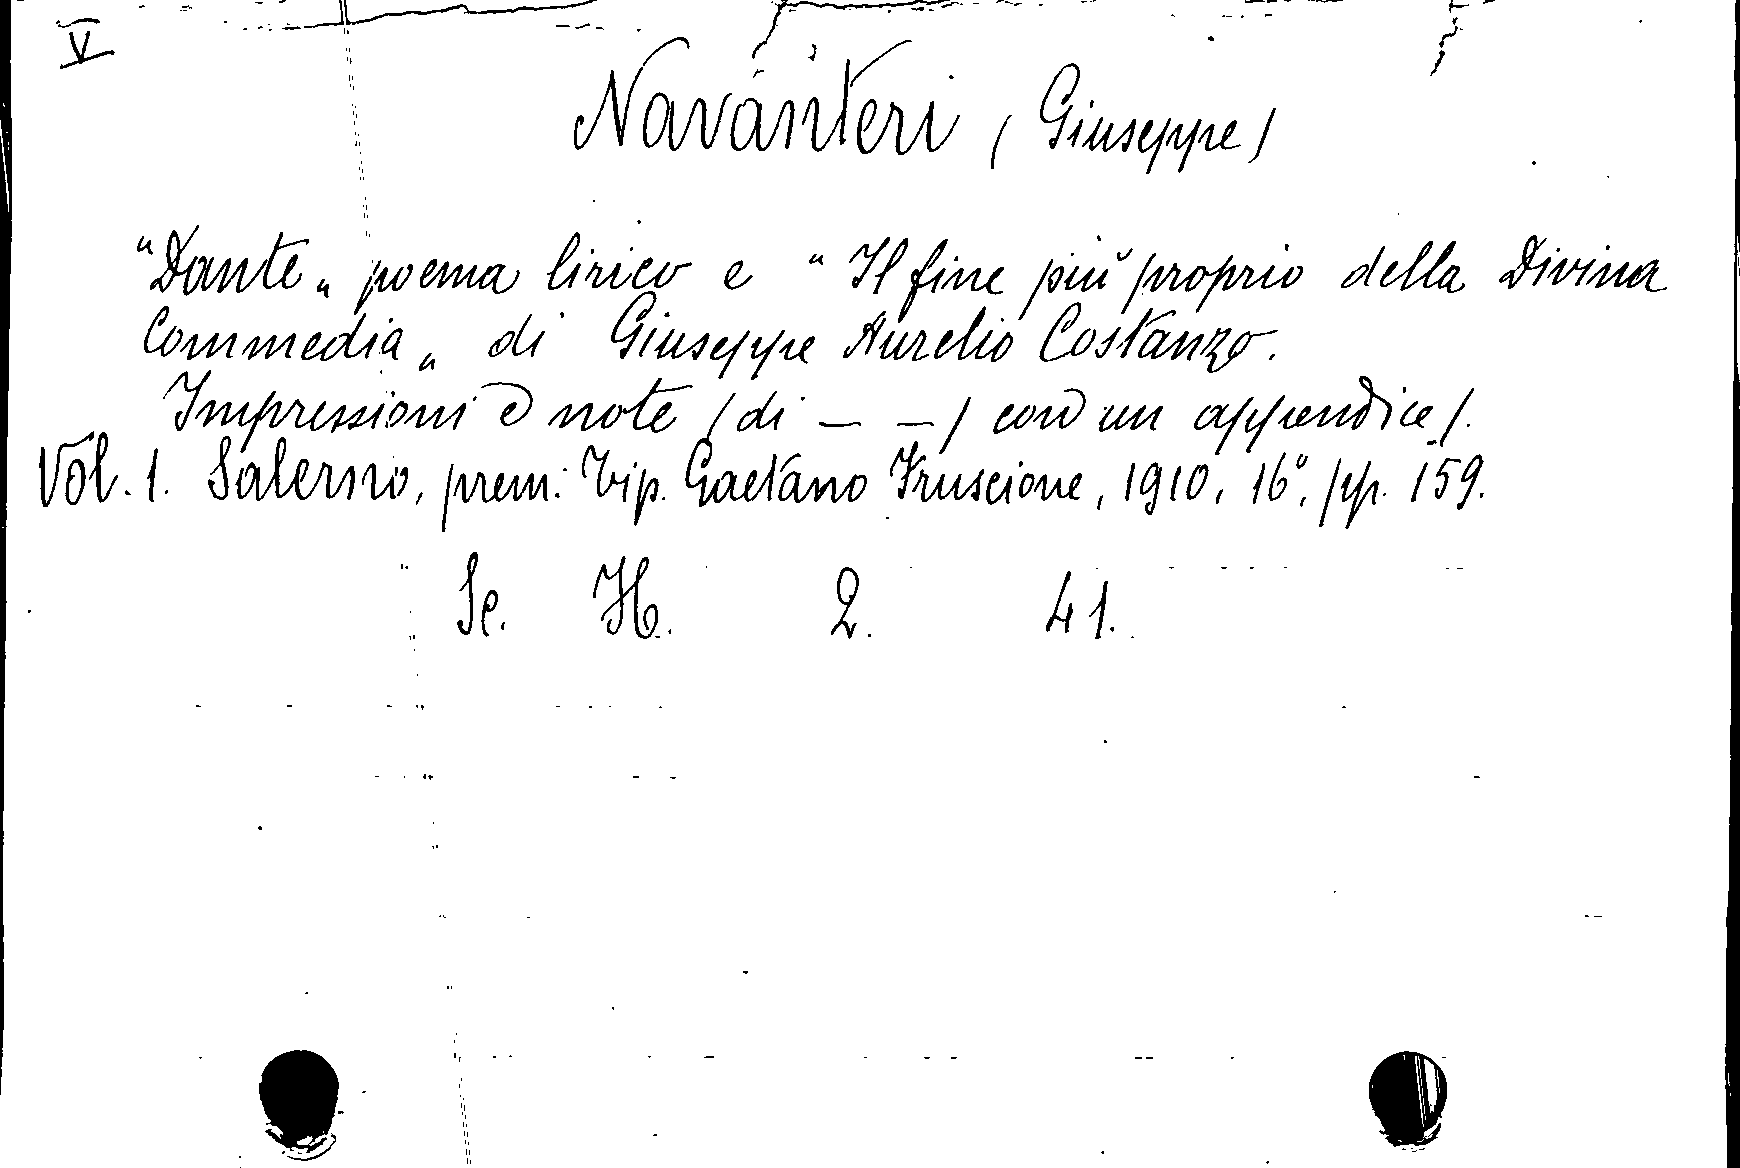 V
Navánteri (Giuseppe)
"Dante„ poema lirico e "Il fine più proprio della Divina
Commedia„ di Giuseppe Aurelio Costanzo.
Impressioni e note (di — —) con un appendice).
Vol. 1. Salerno, prem: Tip. Gaetano Fruscione, 1910, 16°, pp. 159.
Sc. H. 2. 41.